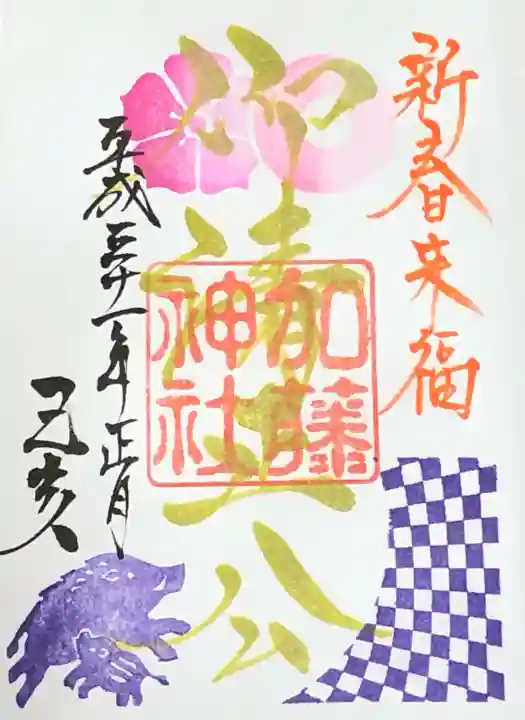 新春来福
仰清正公
加藤
神社
平成三十一年正月
己亥